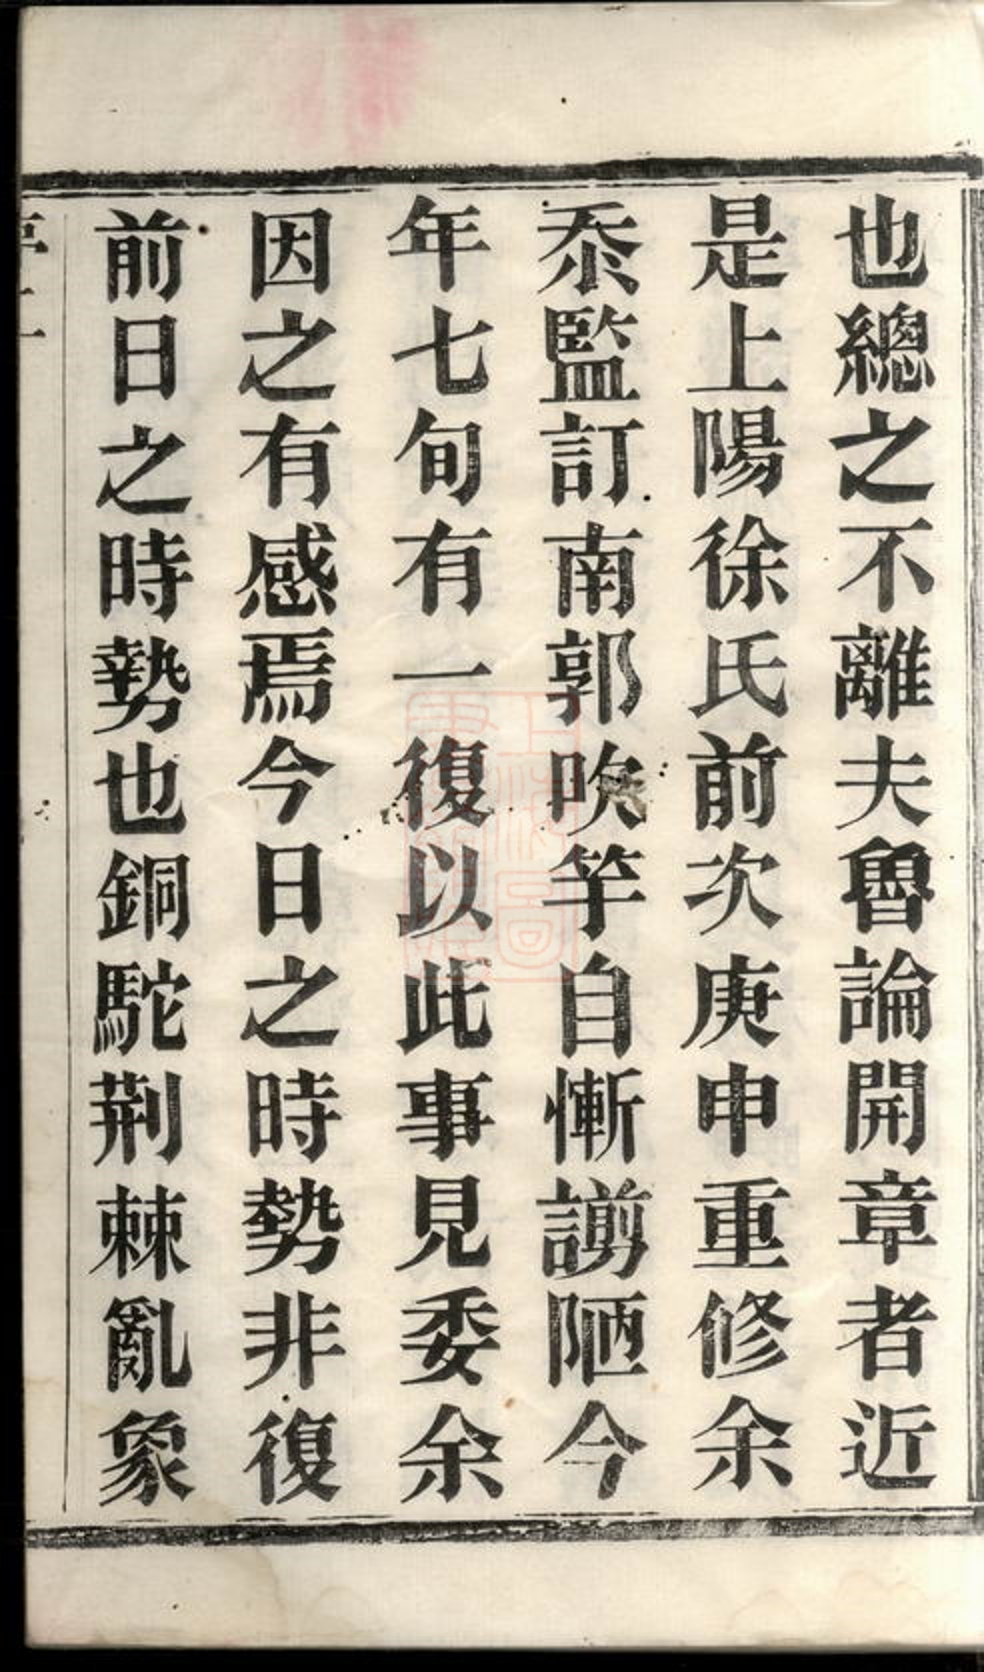 也總之不離夫魯論開章者近
是上陽徐氏前次庚申重修余
忝監訂南郭吹竽自慚謭陋今
年七旬有一復以此事見委余
因之有感焉今日之時勢非復
前日之時勢也銅駝荆棘亂象